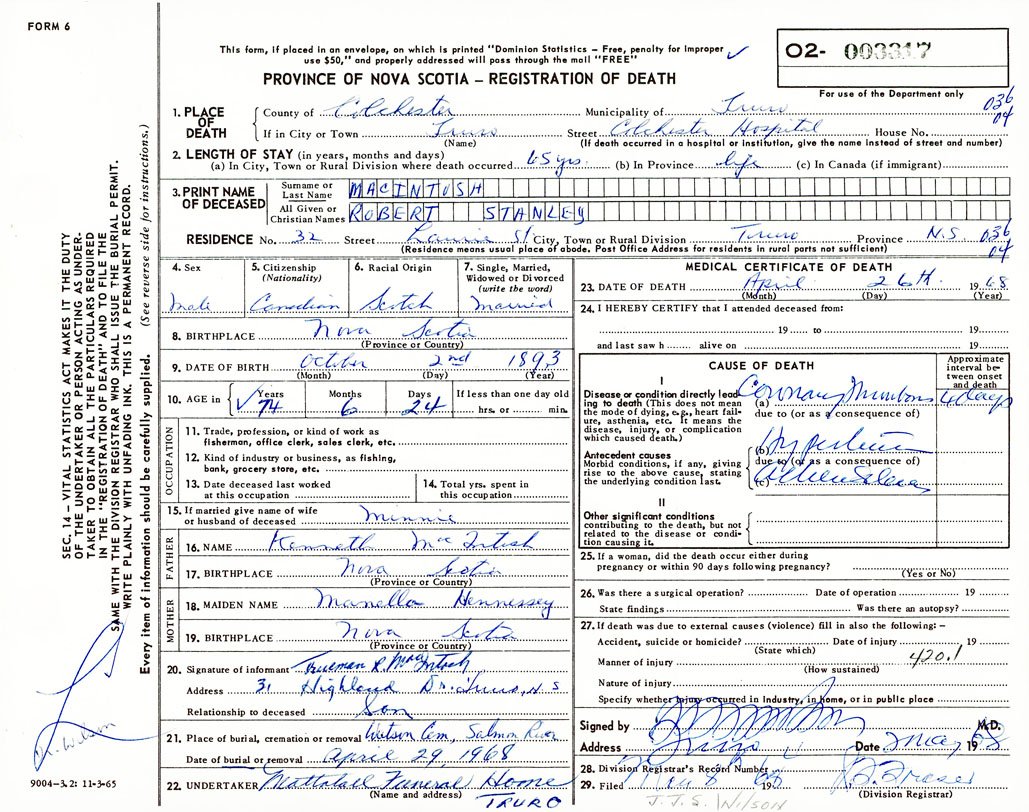 FORM 6
This form, if placed in an envelope, on which is printed "Dominion Statistics – Free, penalty for improper
use $50," and properly addressed will pass through the mail "FREE"
O2- 003317
PROVINCE OF NOVA SCOTIA – REGISTRATION OF DEATH
For use of the Department only
036
04
1. PLACE OF DEATH
County of Colchester Municipality of Truro
If in City or Town Truro Street Colchester Hospital House No.
(Name) (If death occurred in a hospital or institution, give the name instead of street and number)
2. LENGTH OF STAY (in years, months and days)
(a) In City, Town or Rural Division where death occurred 65 yrs. (b) In Province life (c) In Canada (if immigrant)
3. PRINT NAME OF DECEASED
Surname or Last Name MACINTOSH
All Given or Christian Names ROBERT STANLEY
RESIDENCE No. 32 Street Laurie St City, Town or Rural Division Truro Province N.S. 036
04
(Residence means usual place of abode. Post Office Address for residents in rural parts not sufficient)
4. Sex
Male
5. Citizenship
(Nationality)
Canadian
6. Racial Origin
Scotch
7. Single, Married,
Widowed or Divorced
(write the word)
Married
8. BIRTHPLACE Nova Scotia
(Province or Country)
9. DATE OF BIRTH October 2nd 1893
(Month) (Day) (Year)
10. AGE in Years 74 Months 6 Days 24 If less than one day old
hrs. or min.
OCCUPATION
11. Trade, profession, or kind of work as
fisherman, office clerk, sales clerk, etc.
12. Kind of industry or business, as fishing,
bank, grocery store, etc.
13. Date deceased last worked
at this occupation
14. Total yrs. spent in
this occupation
15. If married give name of wife
or husband of deceased Minnie
FATHER
16. NAME Kenneth MacIntosh
17. BIRTHPLACE Nova Scotia
(Province or Country)
MOTHER
18. MAIDEN NAME Manella Hennessey
19. BIRTHPLACE Nova Scotia
(Province or Country)
20. Signature of informant Trueman R. MacIntosh
Address 31 Highland Dr. Truro, N.S
Relationship to deceased Son
21. Place of burial, cremation or removal Watson Cem, Salmon River
Date of burial or removal April 29, 1968
22. UNDERTAKER Mattatall Funeral Home
(Name and address) TRURO
MEDICAL CERTIFICATE OF DEATH
23. DATE OF DEATH April 26th. 1968
(Month) (Day) (Year)
24. I HEREBY CERTIFY that I attended deceased from:
19 to 19
and last saw h alive on 19
CAUSE OF DEATH
Approximate
interval be-
tween onset
and death
I
Disease or condition directly lead-
ing to death (This does not mean
the mode of dying, e.g., heart fail-
ure, asthenia, etc. It means the
disease, injury, or complication
which caused death.)
(a) Coronary Thrombosis 4 days
due to (or as a consequence of)
Antecedent causes
Morbid conditions, if any, giving
rise to the above cause, stating
the underlying condition last.
(b) Hypertension
due to (or as a consequence of)
(c)
II
Other significant conditions
contributing to the death, but not
related to the disease or condi-
tion causing it.
25. If a woman, did the death occur either during
pregnancy or within 90 days following pregnancy?
(Yes or No)
26. Was there a surgical operation? Date of operation 19
State findings Was there an autopsy?
27. If death was due to external causes (violence) fill in also the following: –
Accident, suicide or homicide? Date of injury 19
(State which)
Manner of injury 420.1
(How sustained)
Nature of injury
Specify whether injury occurred in Industry, in home, or in public place
Signed by M.D.
Address Truro Date May 1968
28. Division Registrar's Record Number
29. Filed 1968
(Division Registrar)
J.J.S. Wilson
SEC. 14 – VITAL STATISTICS ACT MAKES IT THE DUTY
OF THE UNDERTAKER OR PERSON ACTING AS UNDER-
TAKER TO OBTAIN ALL THE PARTICULARS REQUIRED
IN THE "REGISTRATION OF DEATH" AND TO FILE THE
SAME WITH THE DIVISION REGISTRAR WHO SHALL ISSUE THE BURIAL PERMIT.
WRITE PLAINLY WITH UNFADING INK. THIS IS A PERMANENT RECORD.
Every item of information should be carefully supplied. (See reverse side for instructions.)
Dr. Wilson
9004–3.2: 11-3-65